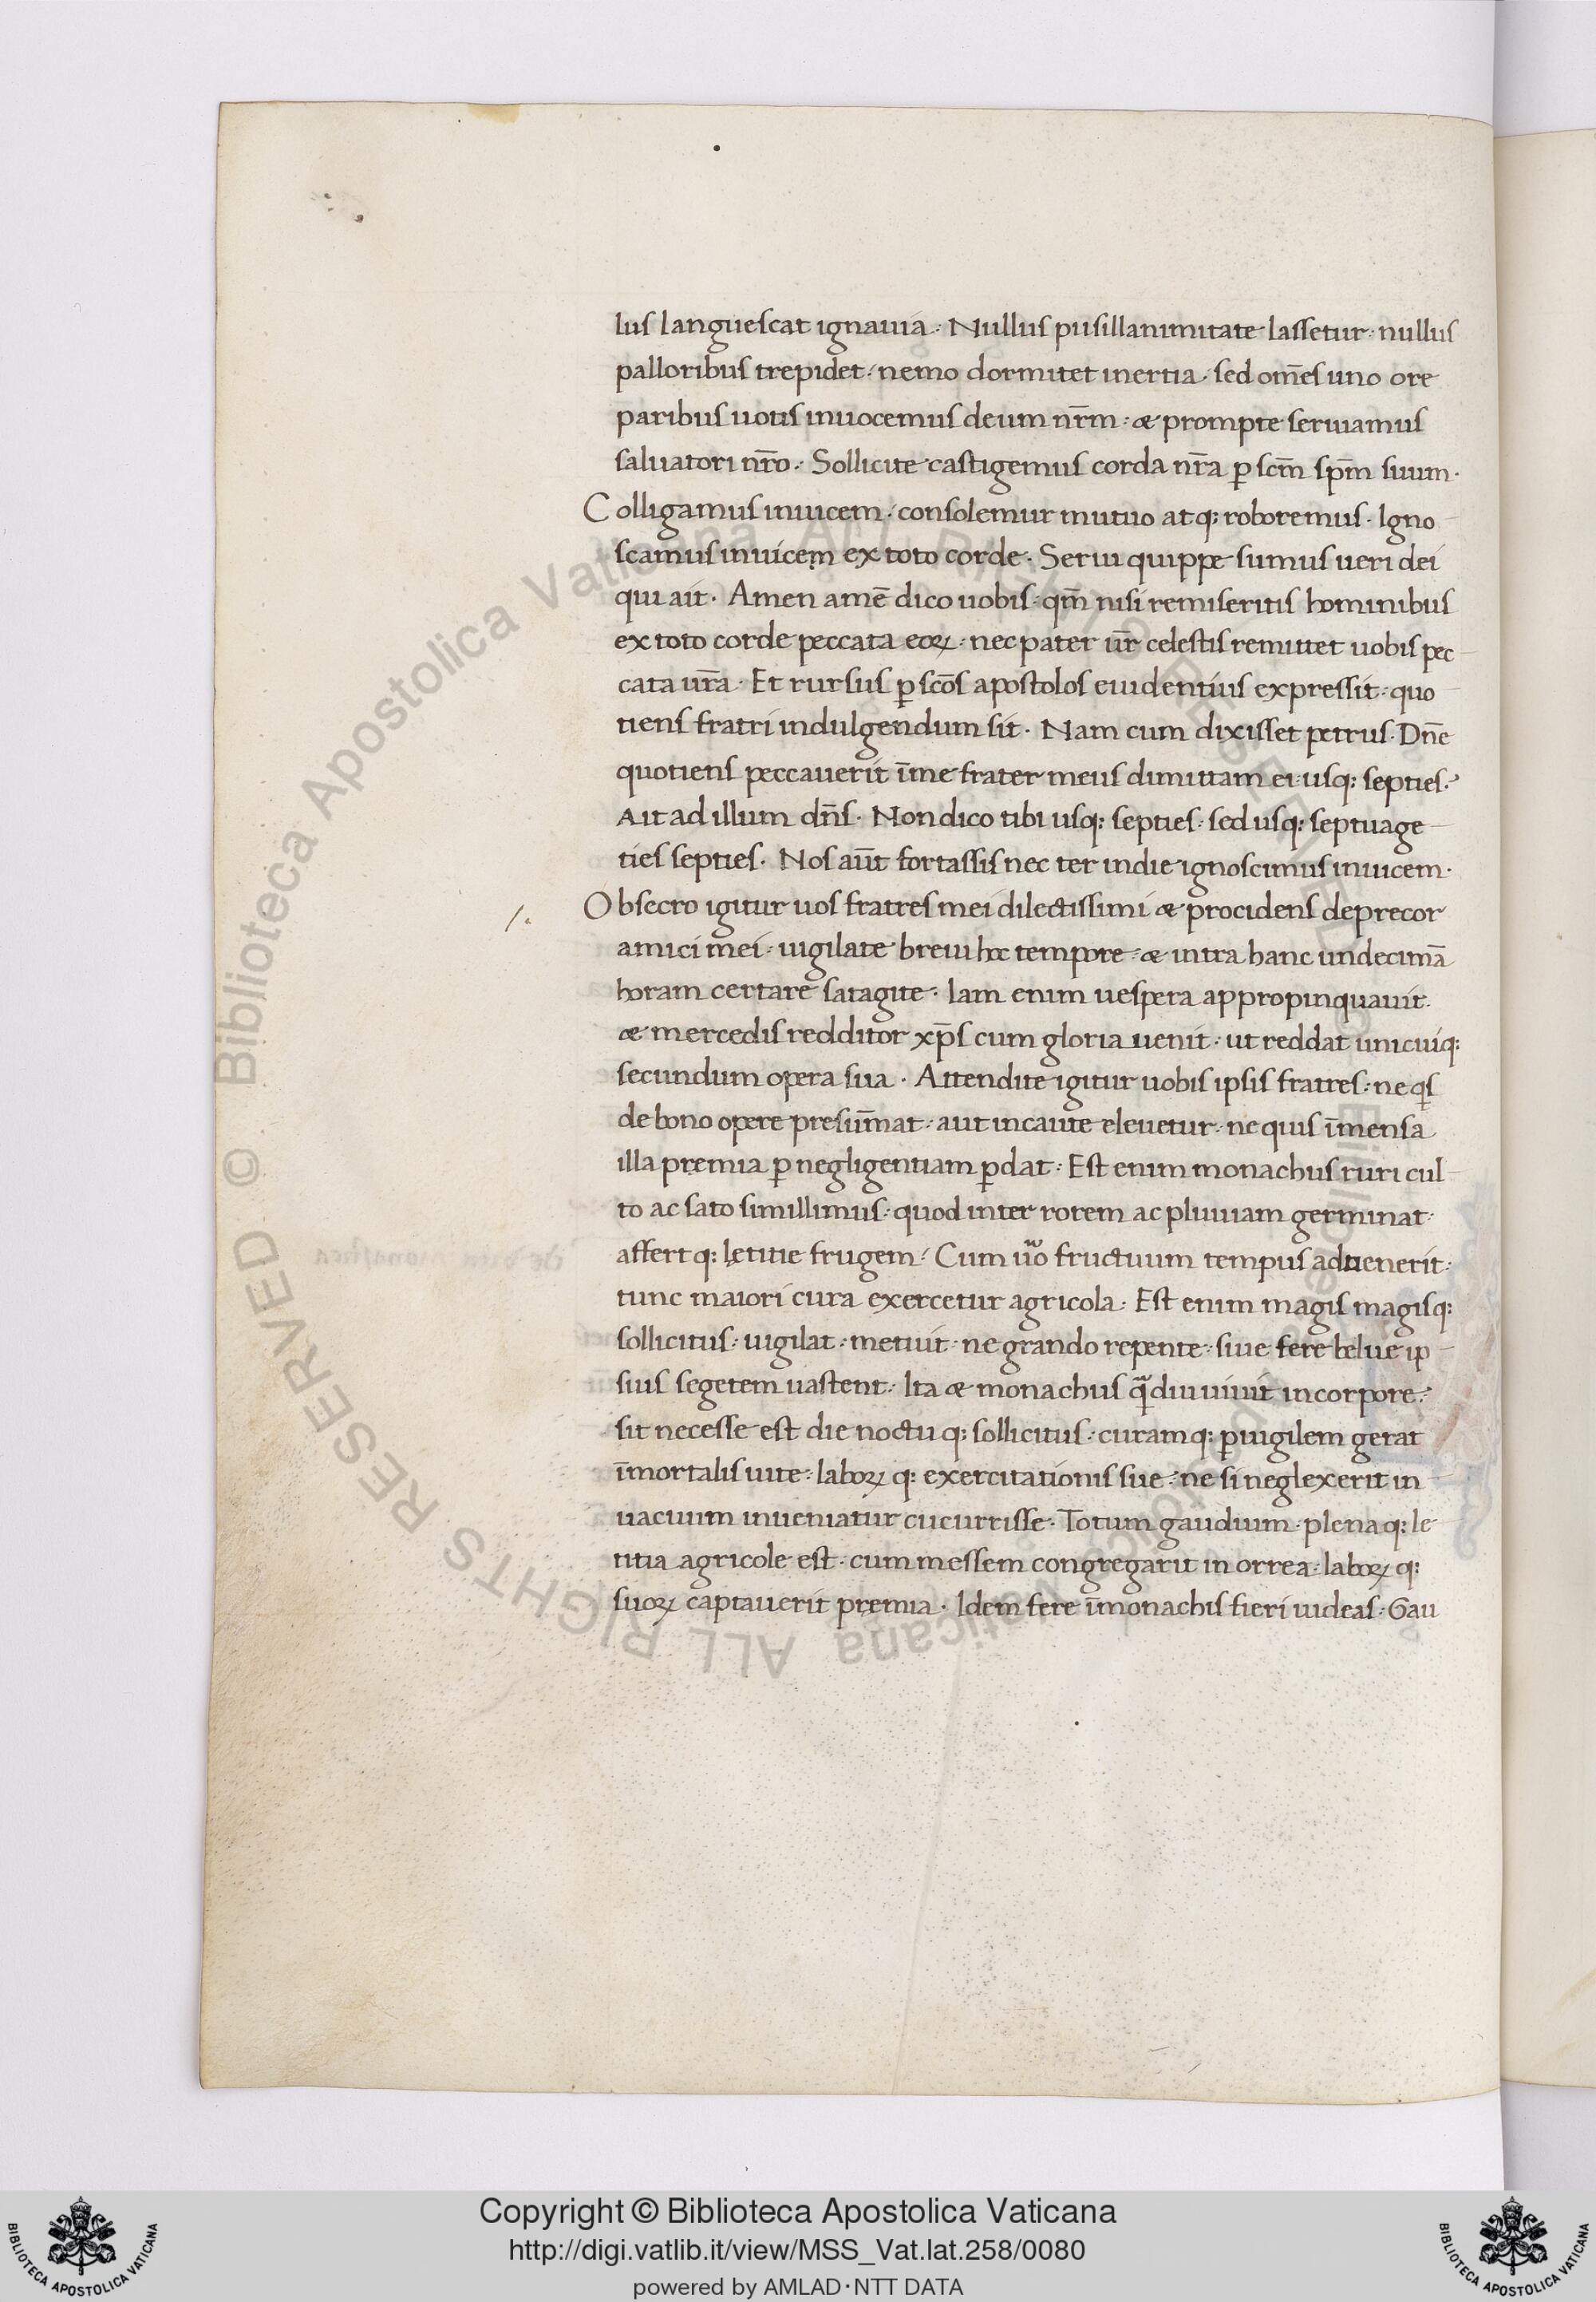 lus languescat ignauia · Nullus pusillanimitate lassetur · nullus
palloribus trepidet · nemo dormitet inertia · sed om̅es uno ore
paribus uotis inuocemus deum nr̅m · & prompte seruiamus
saluatori nr̅o · Sollicite castigemus corda nr̅a ꝑ scm̅ spm̅ suum ·
Colligamus inuicem · consolemur mutuo atq; roboremus · Igno
scamus inuicem ex toto corde · Serui quippe sumus ueri dei
qui ait · Amen ame̅ dico uobis · qm̅ nisi remiseritis hominibus
ex toto corde peccata eoꝝ · nec pater ur̅ celestis remittet uobis pec
cata ur̅a · Et rursus ꝑ sco̅s apostolos euidentius expressit · quo
tiens fratri indulgendum sit · Nam cum dixisset petrus · Dn̅e
quotiens peccauerit i̅me frater meus dimittam ei usq; septies ·
Ait ad illum dn̅s · Non dico tibi usq; septies · sed usq; septuage
ties septies · Nos au̅t fortassis nec ter indie ignoscimus inuicem ·
Obsecro igitur uos fratres mei dilectissimi & procidens deprecor
amici mei · uigilate breui hoc tempore · & intra hanc undecima̅
horam certare satagite · Iam enim uespera appropinquauit ·
& mercedis redditor xp̅s cum gloria uenit · ut reddat unicuiq;
secundum opera sua · Attendite igitur uobis ipsis fratres · ne qs
de bono opere presu̅mat · aut incaute eleuetur · ne quis i̅mensa
illa premia ꝑ negligentiam ꝑdat · Est enim monachus ruri cul
to ac sato simillimus · quod inter rorem ac pluuiam germinat ·
affert q; lętitie frugem · Cum uo fructuum tempus aduenerit ·
tunc maiori cura exercetur agricola · Est enim magis magisq;
sollicitus · uigilat · metuit · ne grando repente · siue fere belue ip
sius segetem uastent · Ita & monachus qdiu uiuit in corpore ·
sit necesse est die noctu q; sollicitus · curamq; ꝑuigilem gerat
i̅mortalis uite · laboꝝ q; exercitationis sue · ne si neglexerit in
uacuum inueniatur cucurrisse · Totum gaudium · plena q; le
titia agricole est · cum messem congregarit in orrea · laboꝝ q;
suoꝝ captauerit pręmia · Idem fere i̅monachis fieri uideas · Gau
© Biblioteca Apostolica Vaticana ALL RIGHTS RESERVED
© Biblioteca Apostolica Vaticana ALL RIGHTS RESERVED
Copyright © Biblioteca Apostolica Vaticana
http://digi.vatlib.it/view/MSS_Vat.lat.258/0080
powered by AMLAD·NTT DATA
BIBLIOTECA APOSTOLICA VATICANA
BIBLIOTECA APOSTOLICA VATICANA